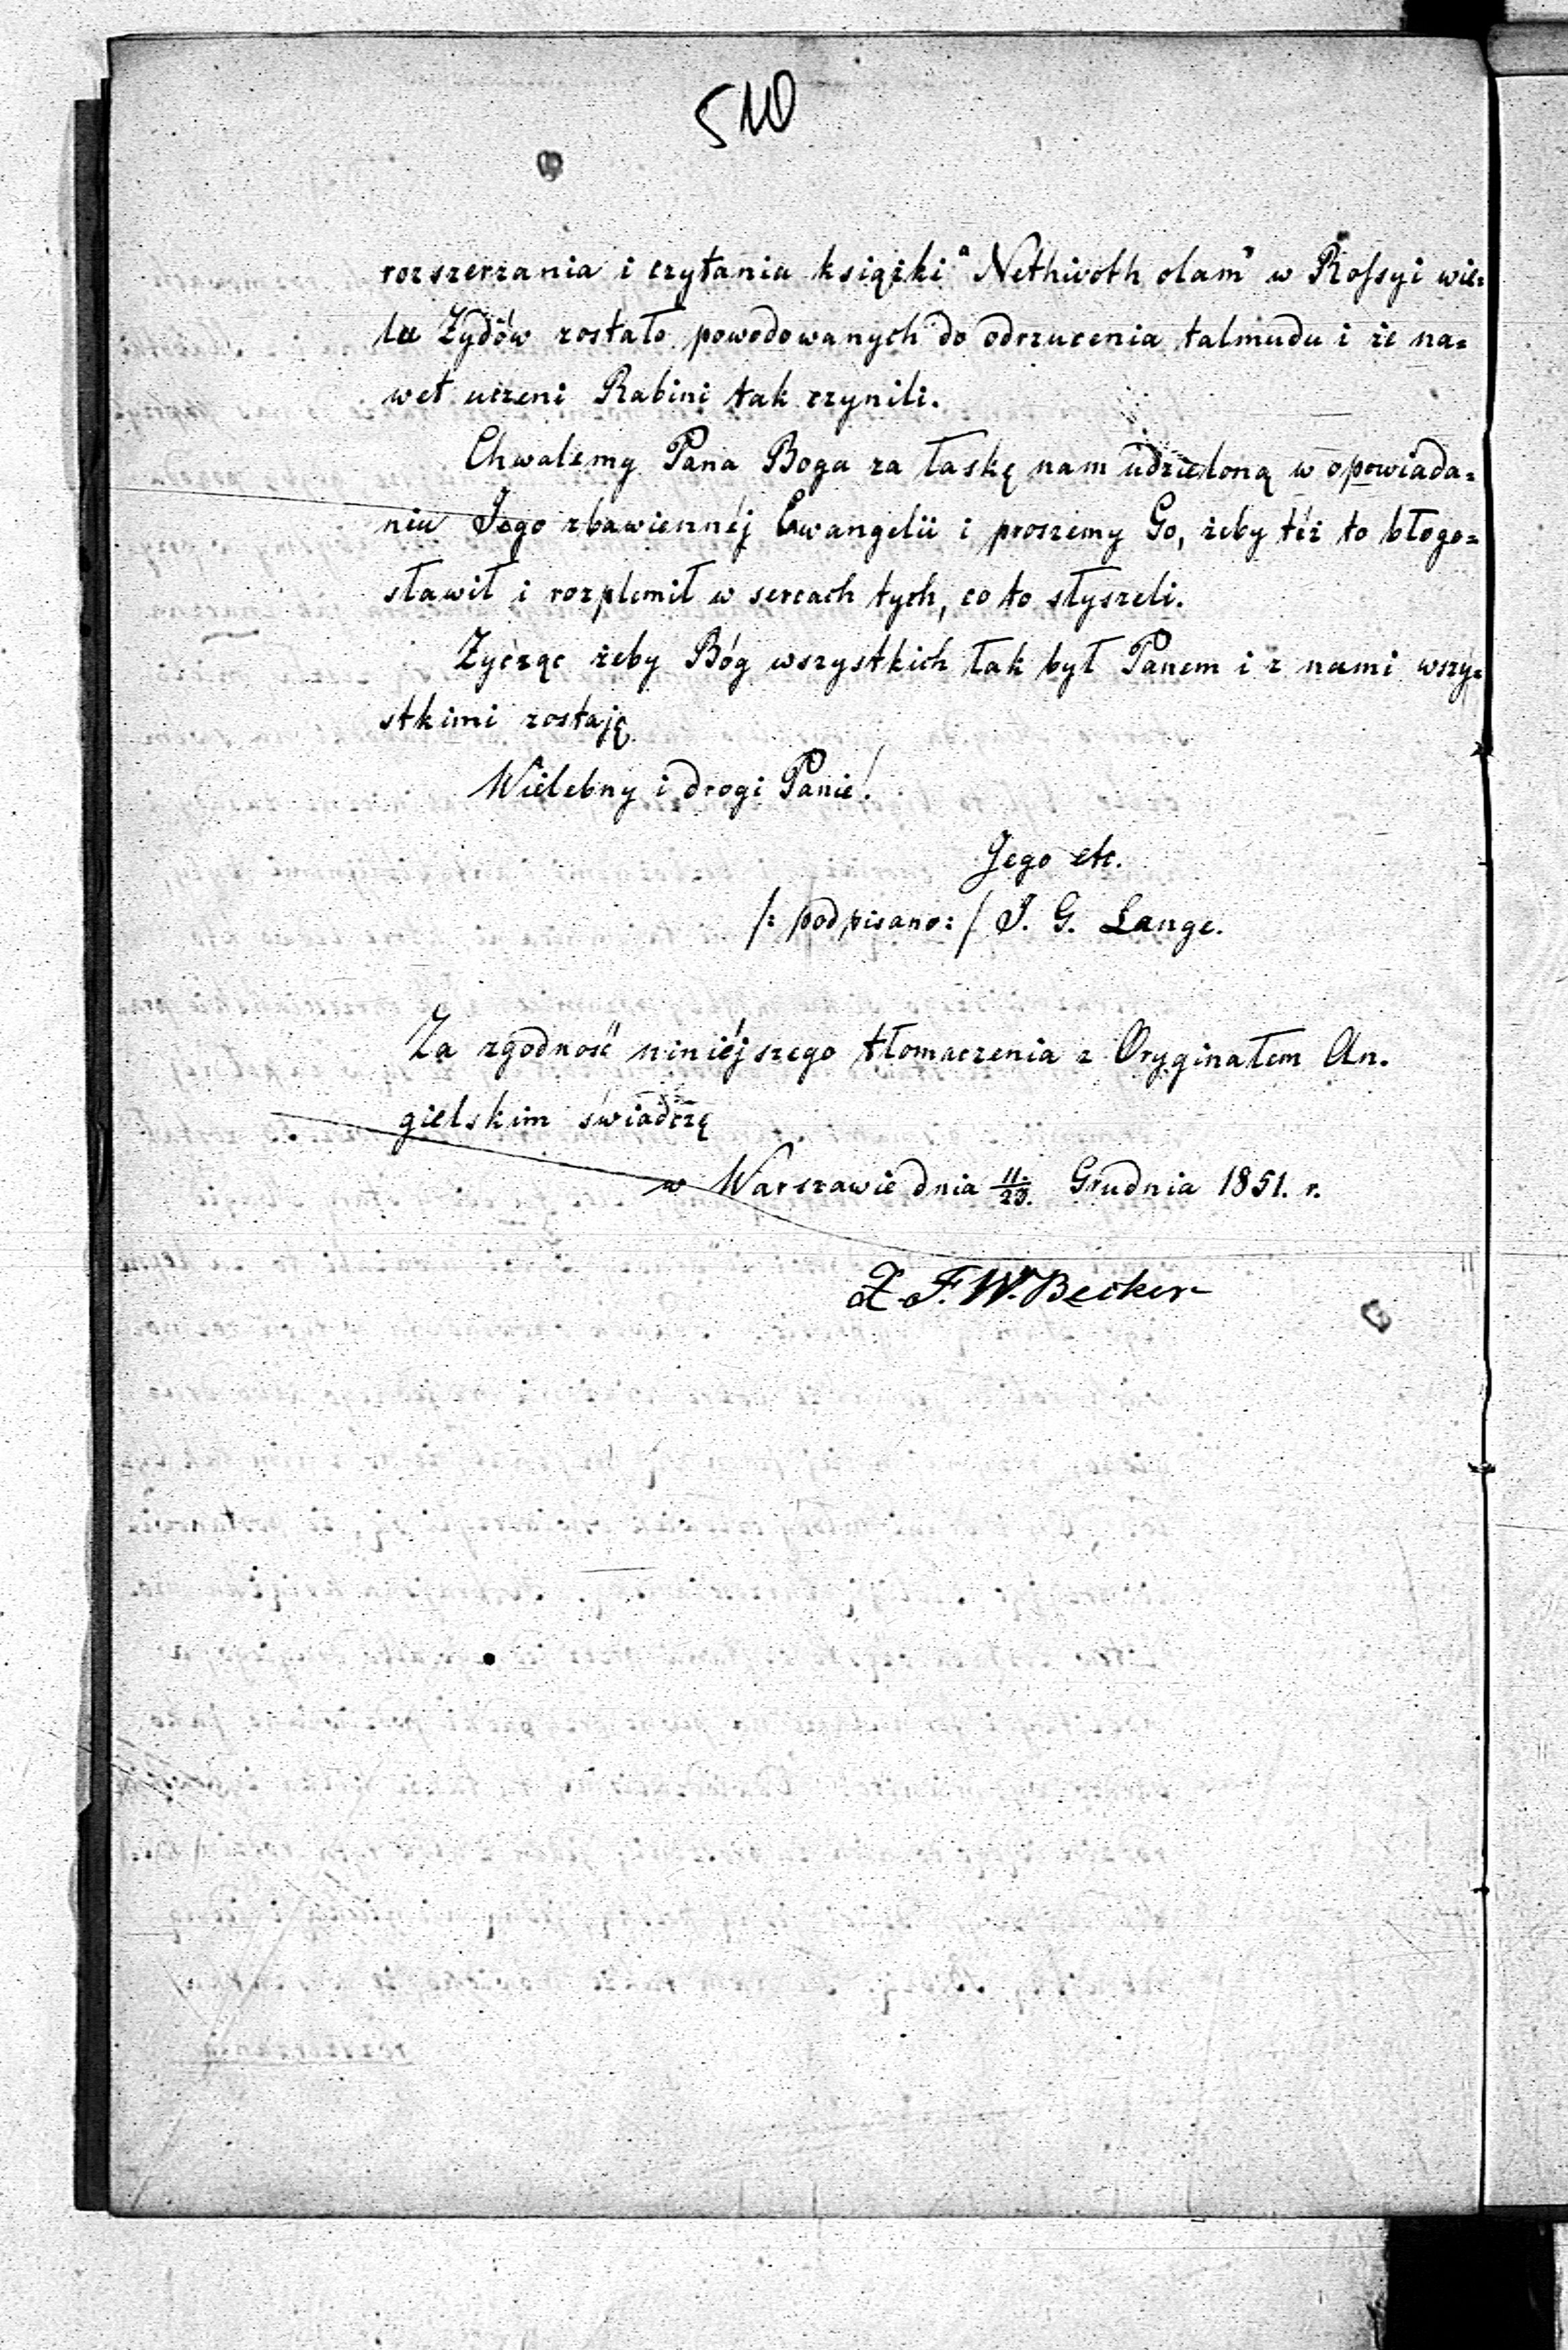 510
rozszerzania i czytania książki "Nethivoth olam" w Rossyi wie=
lu Żydów zostało powodowanych do odrzucenia talmudu i że na=
wet uczeni Rabini tak czynili.
Chwalemy Pana Boga za łaskę nam udzieloną w opowiada=
niu Jego zbawiennéj Ewangelii i prosżemy Go, żeby téż to błogo=
sławił i rozplemił w sercach tych, co to słyszeli.
Życząc żeby Bóg wszystkich łak był Panem i z nami wszy=
stkimi zostaję
Wielebny i drogi Panie!
Jego etc.
/: podpisano: / J. G. Lange.
Za zgodność niniéjszego tłomaczenia z Oryginałem An=
gielskim świadczę
w Warszawie dnia 11./23. Grudnia 1851. r.
X. F. W. Becker